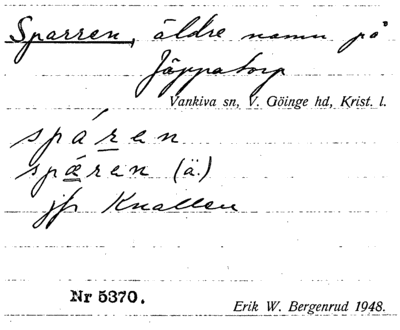 Sparren, äldre namn på
Jäppatorp
Vankiva sn, V. Göinge hd, Krist. l.
spáren
spæren (ä.)
jfr Knallen
Nr 5370.
Erik W. Bergenrud 1948.